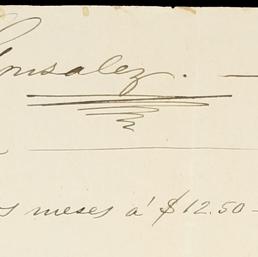 Gonsalez. —
os meses á $12.50 —